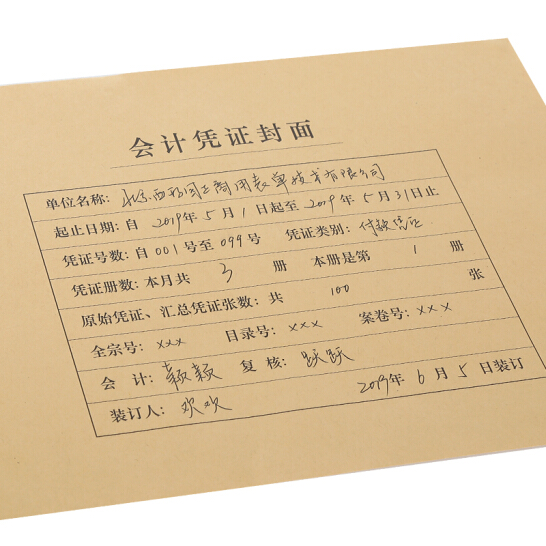 会计凭证封面
单位名称: 北京西玛国正商用表单技术有限公司
起止日期: 自 2019年 5 月 1 日起至 2019 年 5 月 31 日止
凭证号数: 自 001 号至 099 号 凭证类别: 付款凭证
凭证册数: 本月共 3 册 本册是第 1 册
原始凭证、汇总凭证张数: 共 100 张
全宗号: xxx 目录号: xxx 案卷号: xxx
会 计: 颖颖 复 核: 跃跃
装订人: 欢欢 2019年 6 月 5 日装订